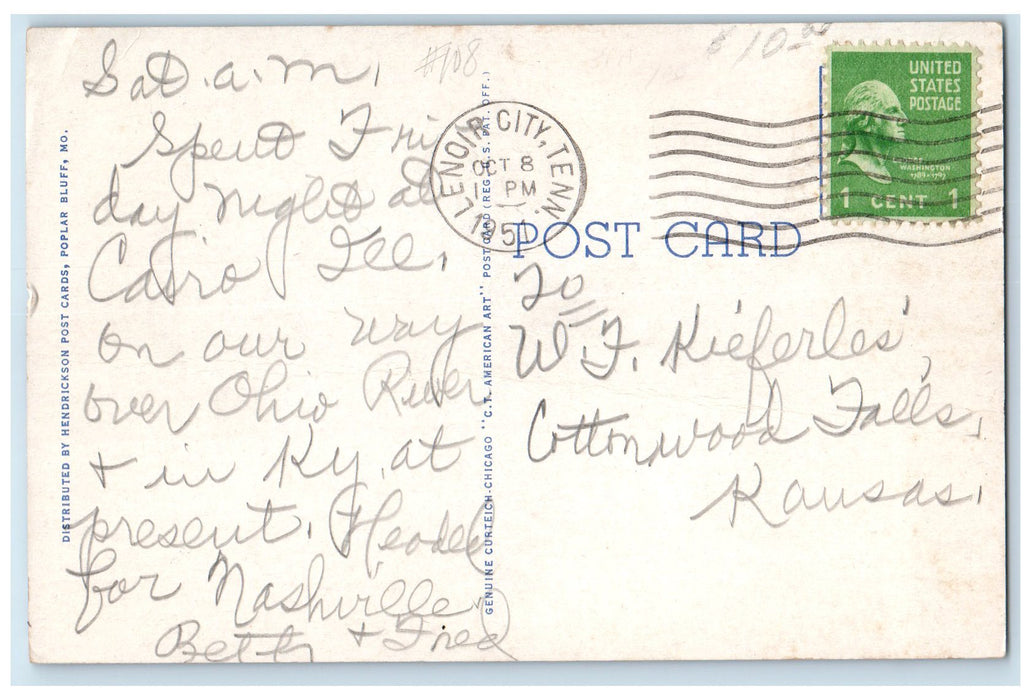 Sat. a.m.
Spent Fri
day night at
Cairo Ill.
on our way
over Ohio River
+ in Ky. at
present. Headed
for Nashville.
Betty + Fred
DISTRIBUTED BY HENDRICKSON POST CARDS, POPLAR BLUFF, MO.
GENUINE CURTEICH-CHICAGO "C.T. AMERICAN ART" POST CARD (REG. U.S. PAT. OFF.)
#108
$10.00
LENOIR CITY, TENN.
OCT 8
PM
1951
UNITED
STATES
POSTAGE
WASHINGTON
1789-1797
1 CENT 1
POST CARD
To
W. F. Kieferles',
Cottonwood Falls,
Kansas.